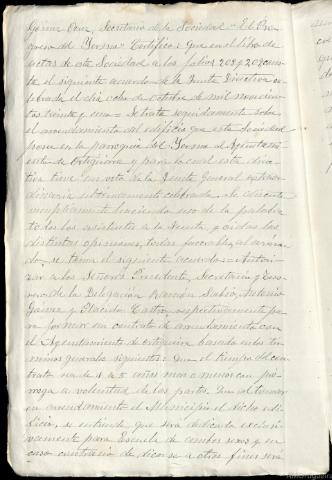 Gaime Orue, Secretario de la Sociedad "El Pro
greso del Yerma" Certifico: Que en el libro de
actas de esta Sociedad a los folios 203 y 202 consta
el siguiente acuerdo de la Junta Directiva ce
lebrada el dia ocho de Octubre de mil novecien
tos veinte y uno = Se trata seguidamente sobre
el arrendamiento del edificio que esta Sociedad
posee en la parroquia del Yerma al Ayuntami
ento de Ortigueira y para lo cual esta direc
tiva tiene un voto de la Junta General extraor
dinaria ultimamente celebrada. Se discute
ampliamente haciendo uso de la palabra
todos los asistentes a la Junta, y oidas las
distintas opiniones, todas favorables al arrien
do, se toma el siguiente acuerdo = Autori
zar a los Señores Presidente, Secretario y Teso
rero de la Delegación Ramón Rubio, Antonio
Gaime y Placido Castro, respectivamente pa
ra formar un contrato de arrendamiento con
el Ayuntamiento de Ortigueira basado en los ter
minos generales siguientes: Que el tiempo del con
trato sea de 4 a 5 años mas o menos con pro
rroga a voluntad de las partes. Que al tomar
en arrendamiento el Municipio el dicho edi
ficio, se entiende que será dedicado exclusi
vamente para Escuela de ambos sexos y en
caso contrario de dicarse a otros fines será